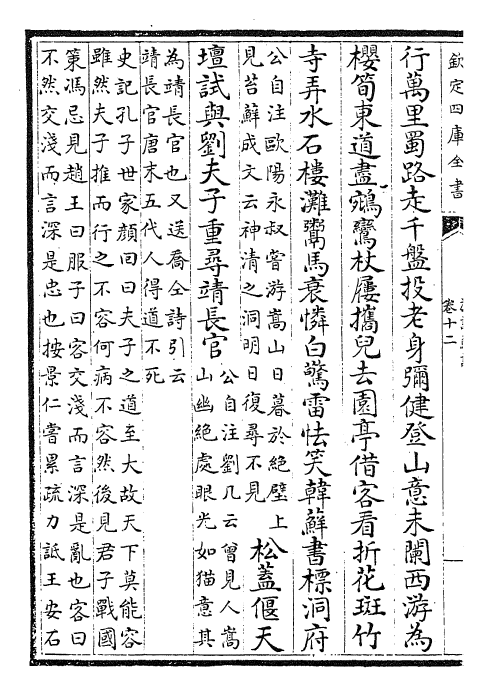 欽定四庫全書
卷十二
行萬里蜀路走千盤投老身彌健登山意未闌西游為
櫻筍東道盡鵷鸞杖屨攜兒去園亭借客看折花斑竹
寺弄水石樓灘鬻馬衰憐白驚雷怯笑韓蘚書標洞府
公自注歐陽永叔嘗游嵩山日暮於絶壁上
見苔蘚成文云神清之洞明日復尋不見
松蓋偃天
壇試與劉夫子重尋靖長官
公自注劉几云曾見人嵩
山幽絶處眼光如猫意其
為靖長官也又送喬仝詩引云
靖長官唐末五代人得道不死
史記孔子世家顔回曰夫子之道至大故天下莫能容
雖然夫子推而行之不容何病不容然後見君子戰國
策馮忌見趙王曰服子曰客交淺而言深是亂也客曰
不然交淺而言深是忠也按景仁嘗累疏力詆王安石